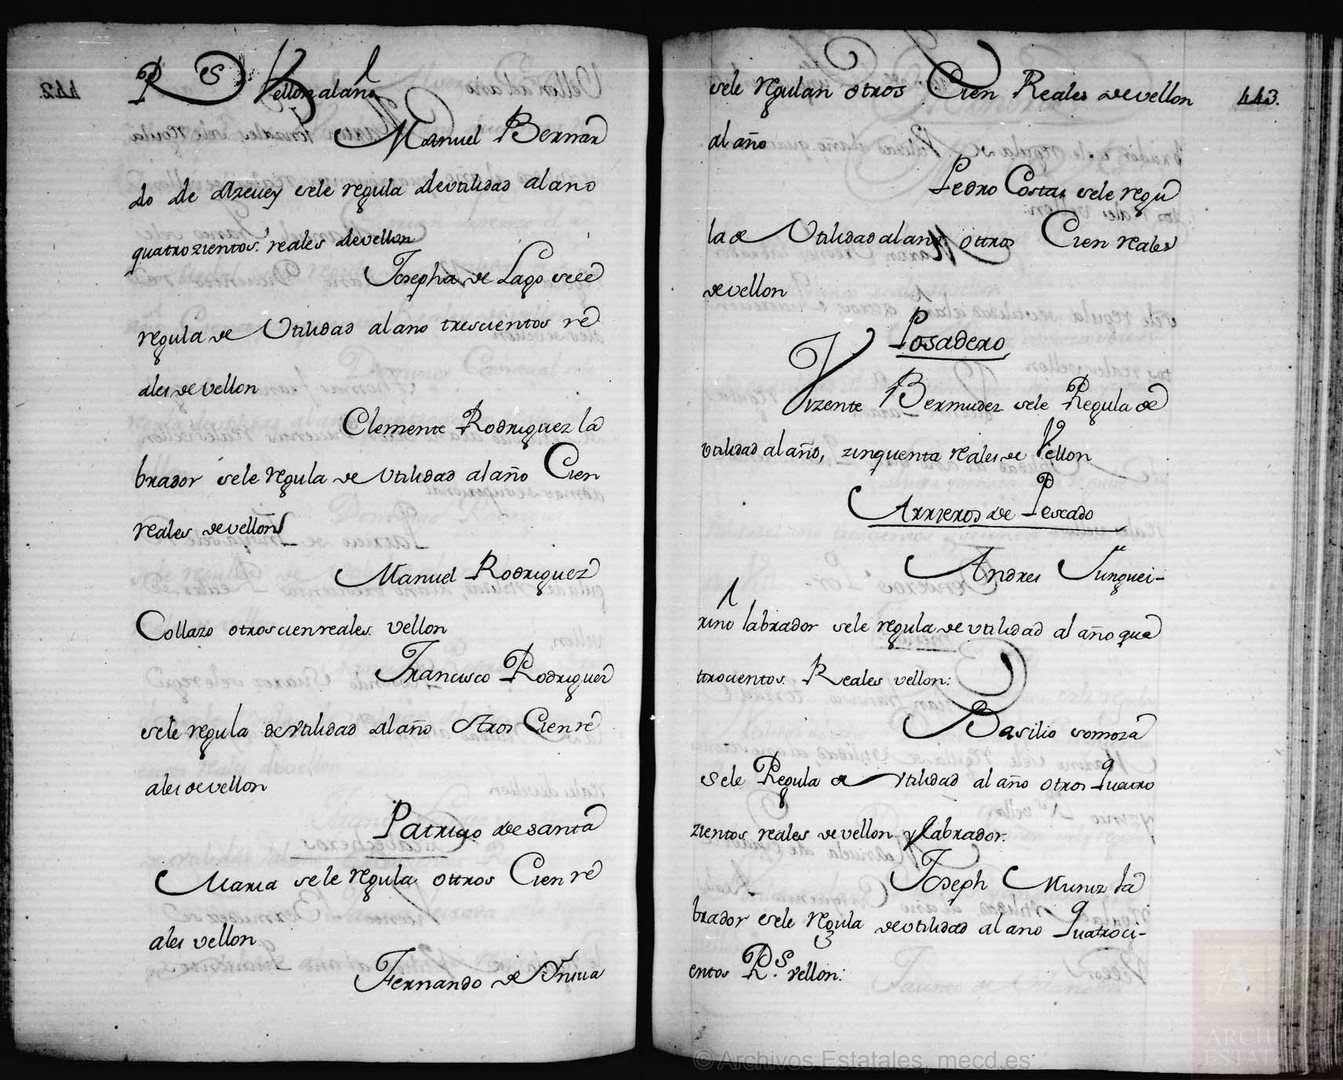 R.S Vellon al año
Manuel Bernar
do de sele regula de utilidad al ano
quatrozientos reales de vellon
Josepha de Lago sele
regula de Utilidad al ano trescientos re
ales de vellon
Clemente Rodriguez la
brador sele regula de Utilidad al año Cien
reales de vellon
Manuel Rodriguez
Collazo otros cien reales vellon
Francisco Rodriguez
sele regula de utilidad al año otros Cien re
ales de vellon
Patricio de santa
Maria sele regula ottros Cien re
ales vellon
Fernando de
443.
sele regulan otros Cien Reales de vellon
al año
Pedro Costa, sele regu
la de Utilidad al ano ottros Cien reales
de vellon
Posadero
Vizente Bermudez sele Regula de
utilidad al año, zinquenta reales de Vellon
Arrieros de Pescado
Andres Junquei-
rino labrador sele regula de utilidad al año qua
trocientos Reales vellon:
Basilio somoza
sele Regula de utilidad al año otros quatro
zientos reales de vellon y labrador.
Joseph Muniz la
brador sele regula de utilidad al ano quatroci-
entos R.s vellon:
© Archivos Estatales, mecd.es